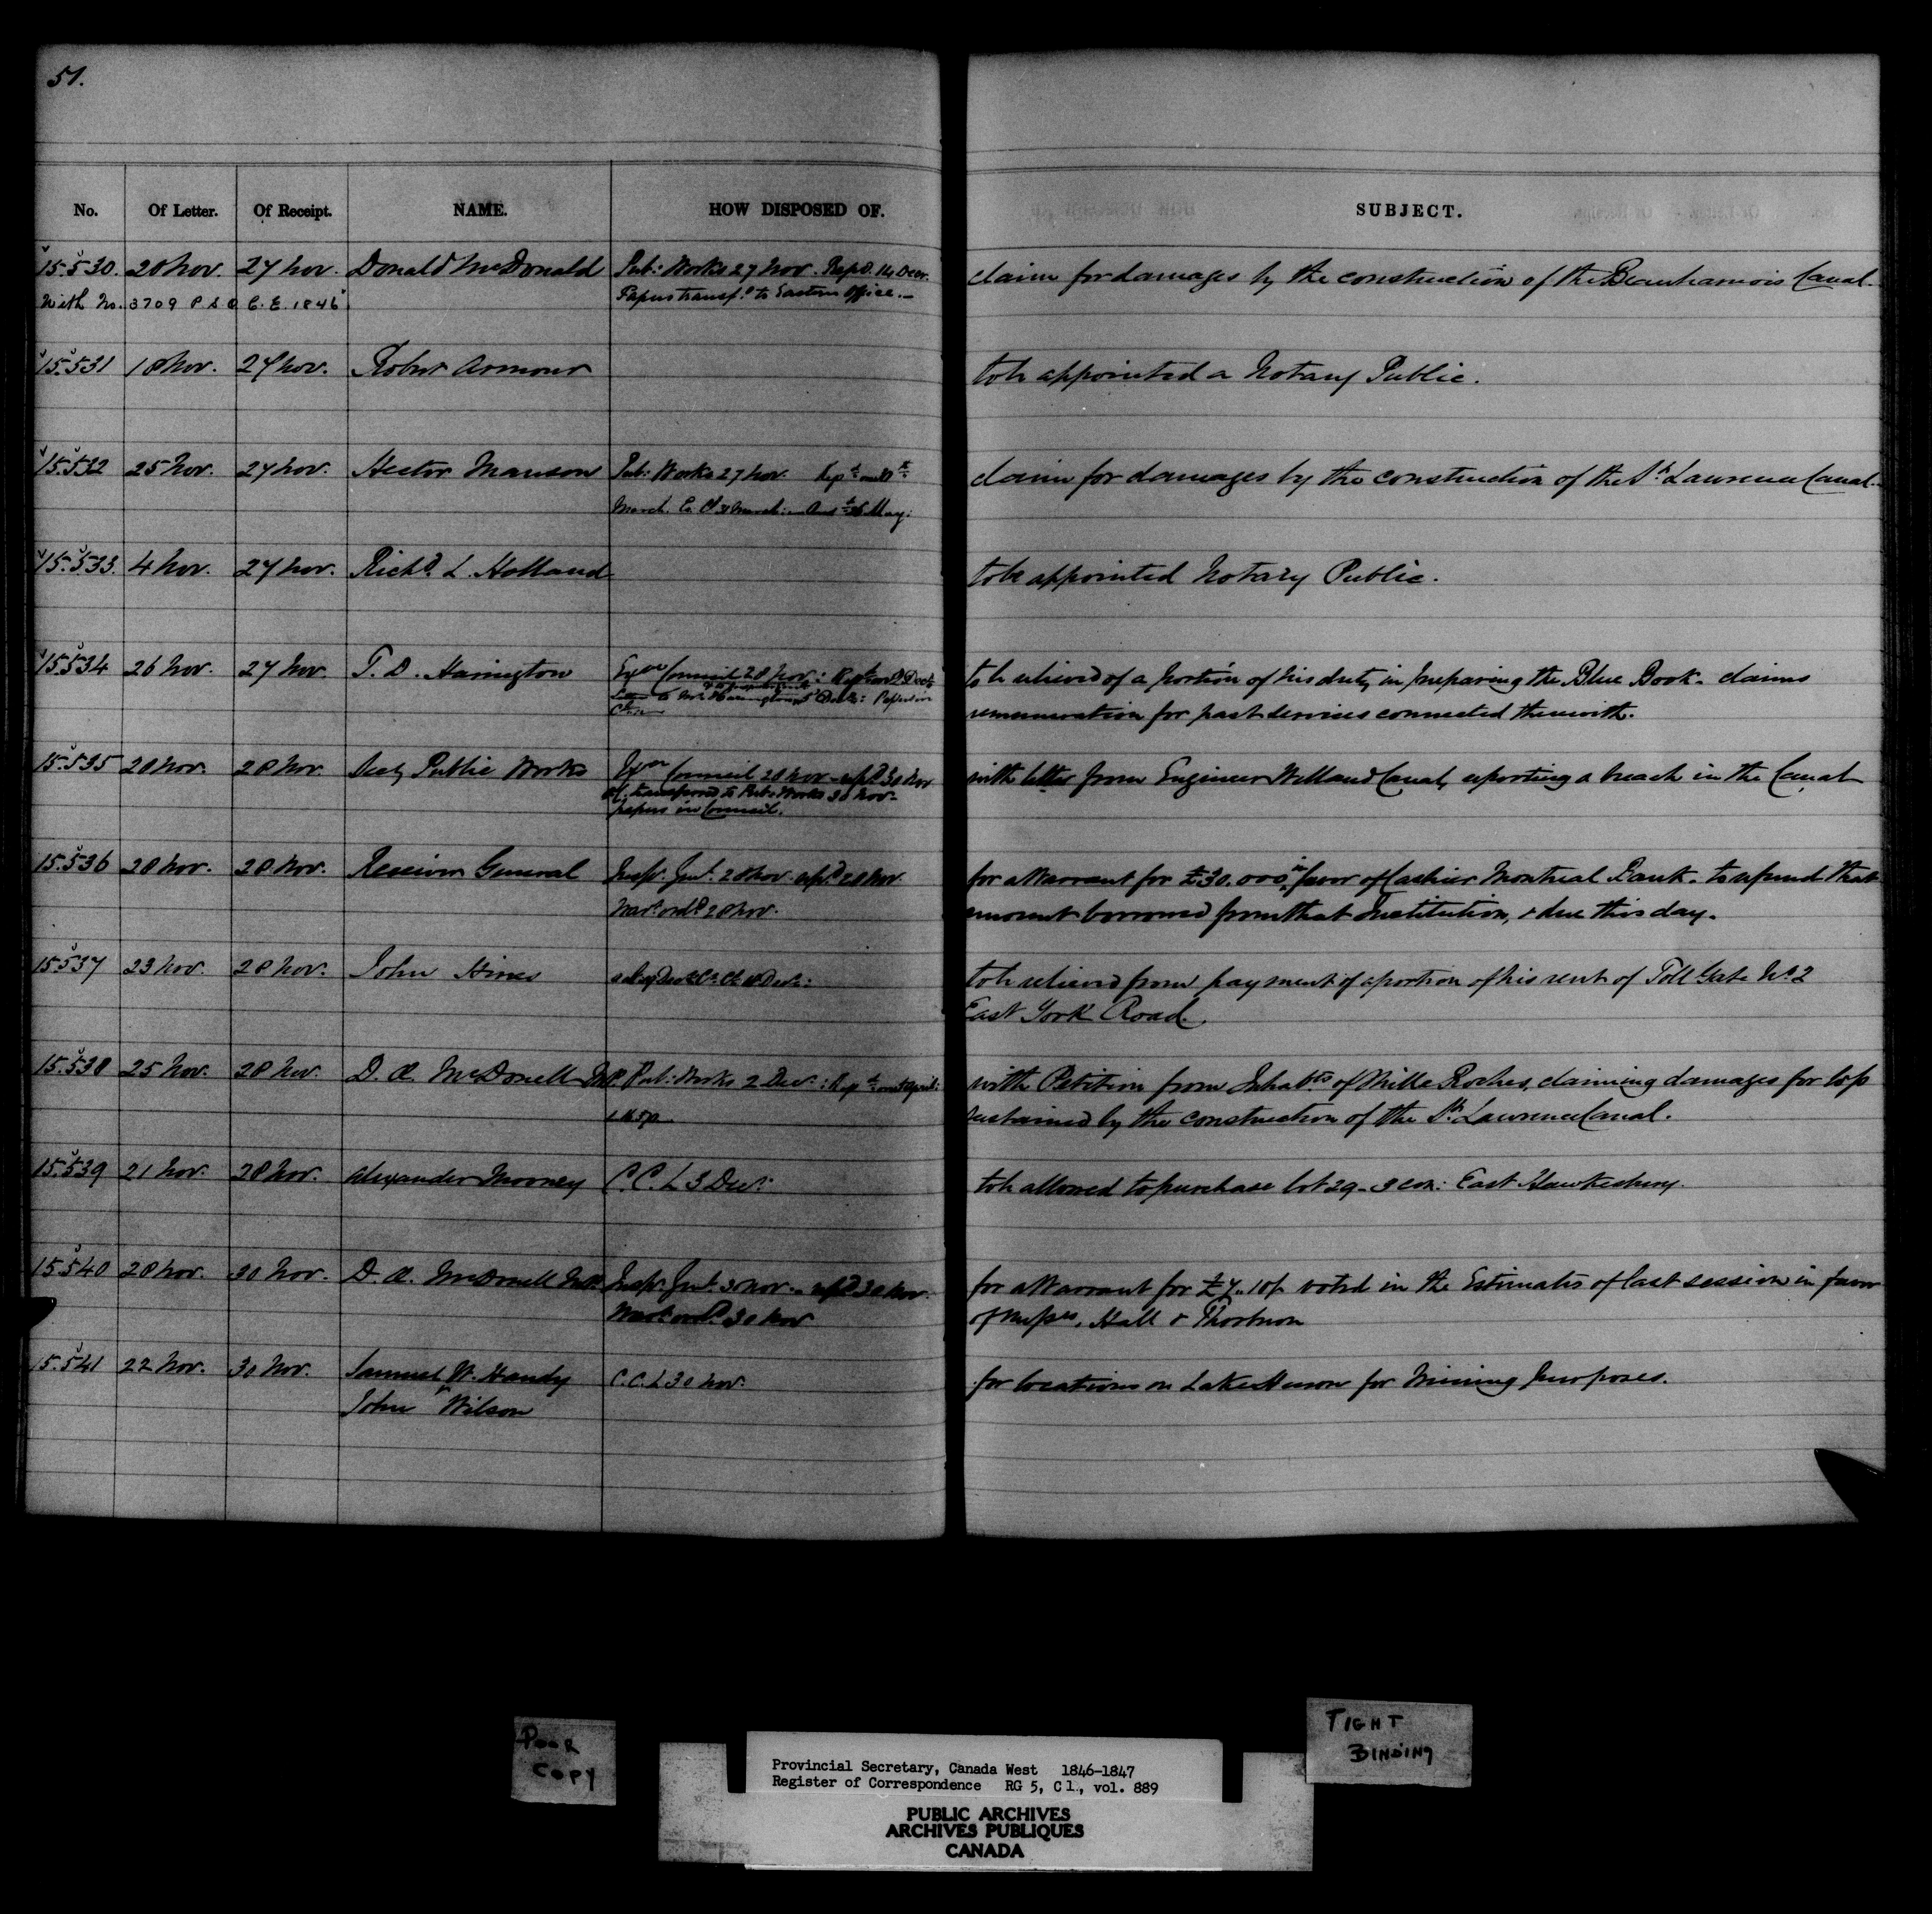 51.
No. Of Letter. Of Receipt. NAME. HOW DISPOSED OF. SUBJECT.
15.530. 20 Nov. 27 Nov. Donald McDonald Pub: Works 27 Nov. Repd. 14 Decr. claim for damages by the construction of the Beauharnois Canal.
With No. 3709 P.S.O. C.E. 1846 Papers transfd. to Eastern Office.
15.531 18 Nov. 27 Nov. Robert Armour to be appointed a Notary Public.
15.532 25 Nov. 27 Nov. Hector Manson Pub: Works 27 Nov. claim for damages by the construction of the St. Lawrence Canal.
March. 31 March: 26 May:
15.533. 4 Nov. 27 Nov. Richd. L. Holland to be appointed Notary Public.
15.534 26 Nov. 27 Nov. T. D. Harrington Exve Council 28 Nov: to be relieved of a portion of his duty in preparing the Blue Book. claims
to Mr. Harrington Papers in remuneration for past services connected therewith.
15.535 28 Nov. 28 Nov. Secy Public Works Exve Council 28 Nov - repd 30 Nov with letter from Engineer Welland Canal, reporting a breach in the Canal
transferred to Pub: Works 30 Nov.
papers in Council.
15.536 28 Nov. 28 Nov. Receiver General Inspr. Genl. 28 Nov. repd 28 Nov. for a Warrant for £30.000, in favor of Cashier Montreal Bank. to refund that
Wart. ordd 28 Nov. amount borrowed from that Institution, & due this day.
15.537 23 Nov. 28 Nov. John Hines to be relieved from payment of a portion of his rent of Toll Gate No. 2
East York Road.
15.538 25 Nov. 28 Nov. D. Æ. McDonell M.P. Pub: Works 2 Decr.: with Petition from Inhabts of Mille Roches, claiming damages for loss
sustained by the construction of the St. Lawrence Canal.
15.539 21 Nov. 28 Nov. Alexander Mooney C.C.L 3 Decr: to be allowed to purchase lot 29 - 3 con: East Hawkesbury.
15.540 28 Nov. 30 Nov. D. Æ. McDonell Inspr. Genl. 30 Nov. - repd 30 Nov. for a Warrant for £7.. 10/- voted in the Estimates of last session in favor
Wart. ordd. 30 Nov of Messrs, Hall &
15.541 22 Nov. 30 Nov. Samuel W. Handy C.C.L 30 Nov. for locations on Lake Huron for Mining purposes.
& John Wilson
POOR
COPY
TIGHT
BINDING
Provincial Secretary, Canada West 1846-1847
Register of Correspondence RG 5, C 1., vol. 889
PUBLIC ARCHIVES
ARCHIVES PUBLIQUES
CANADA